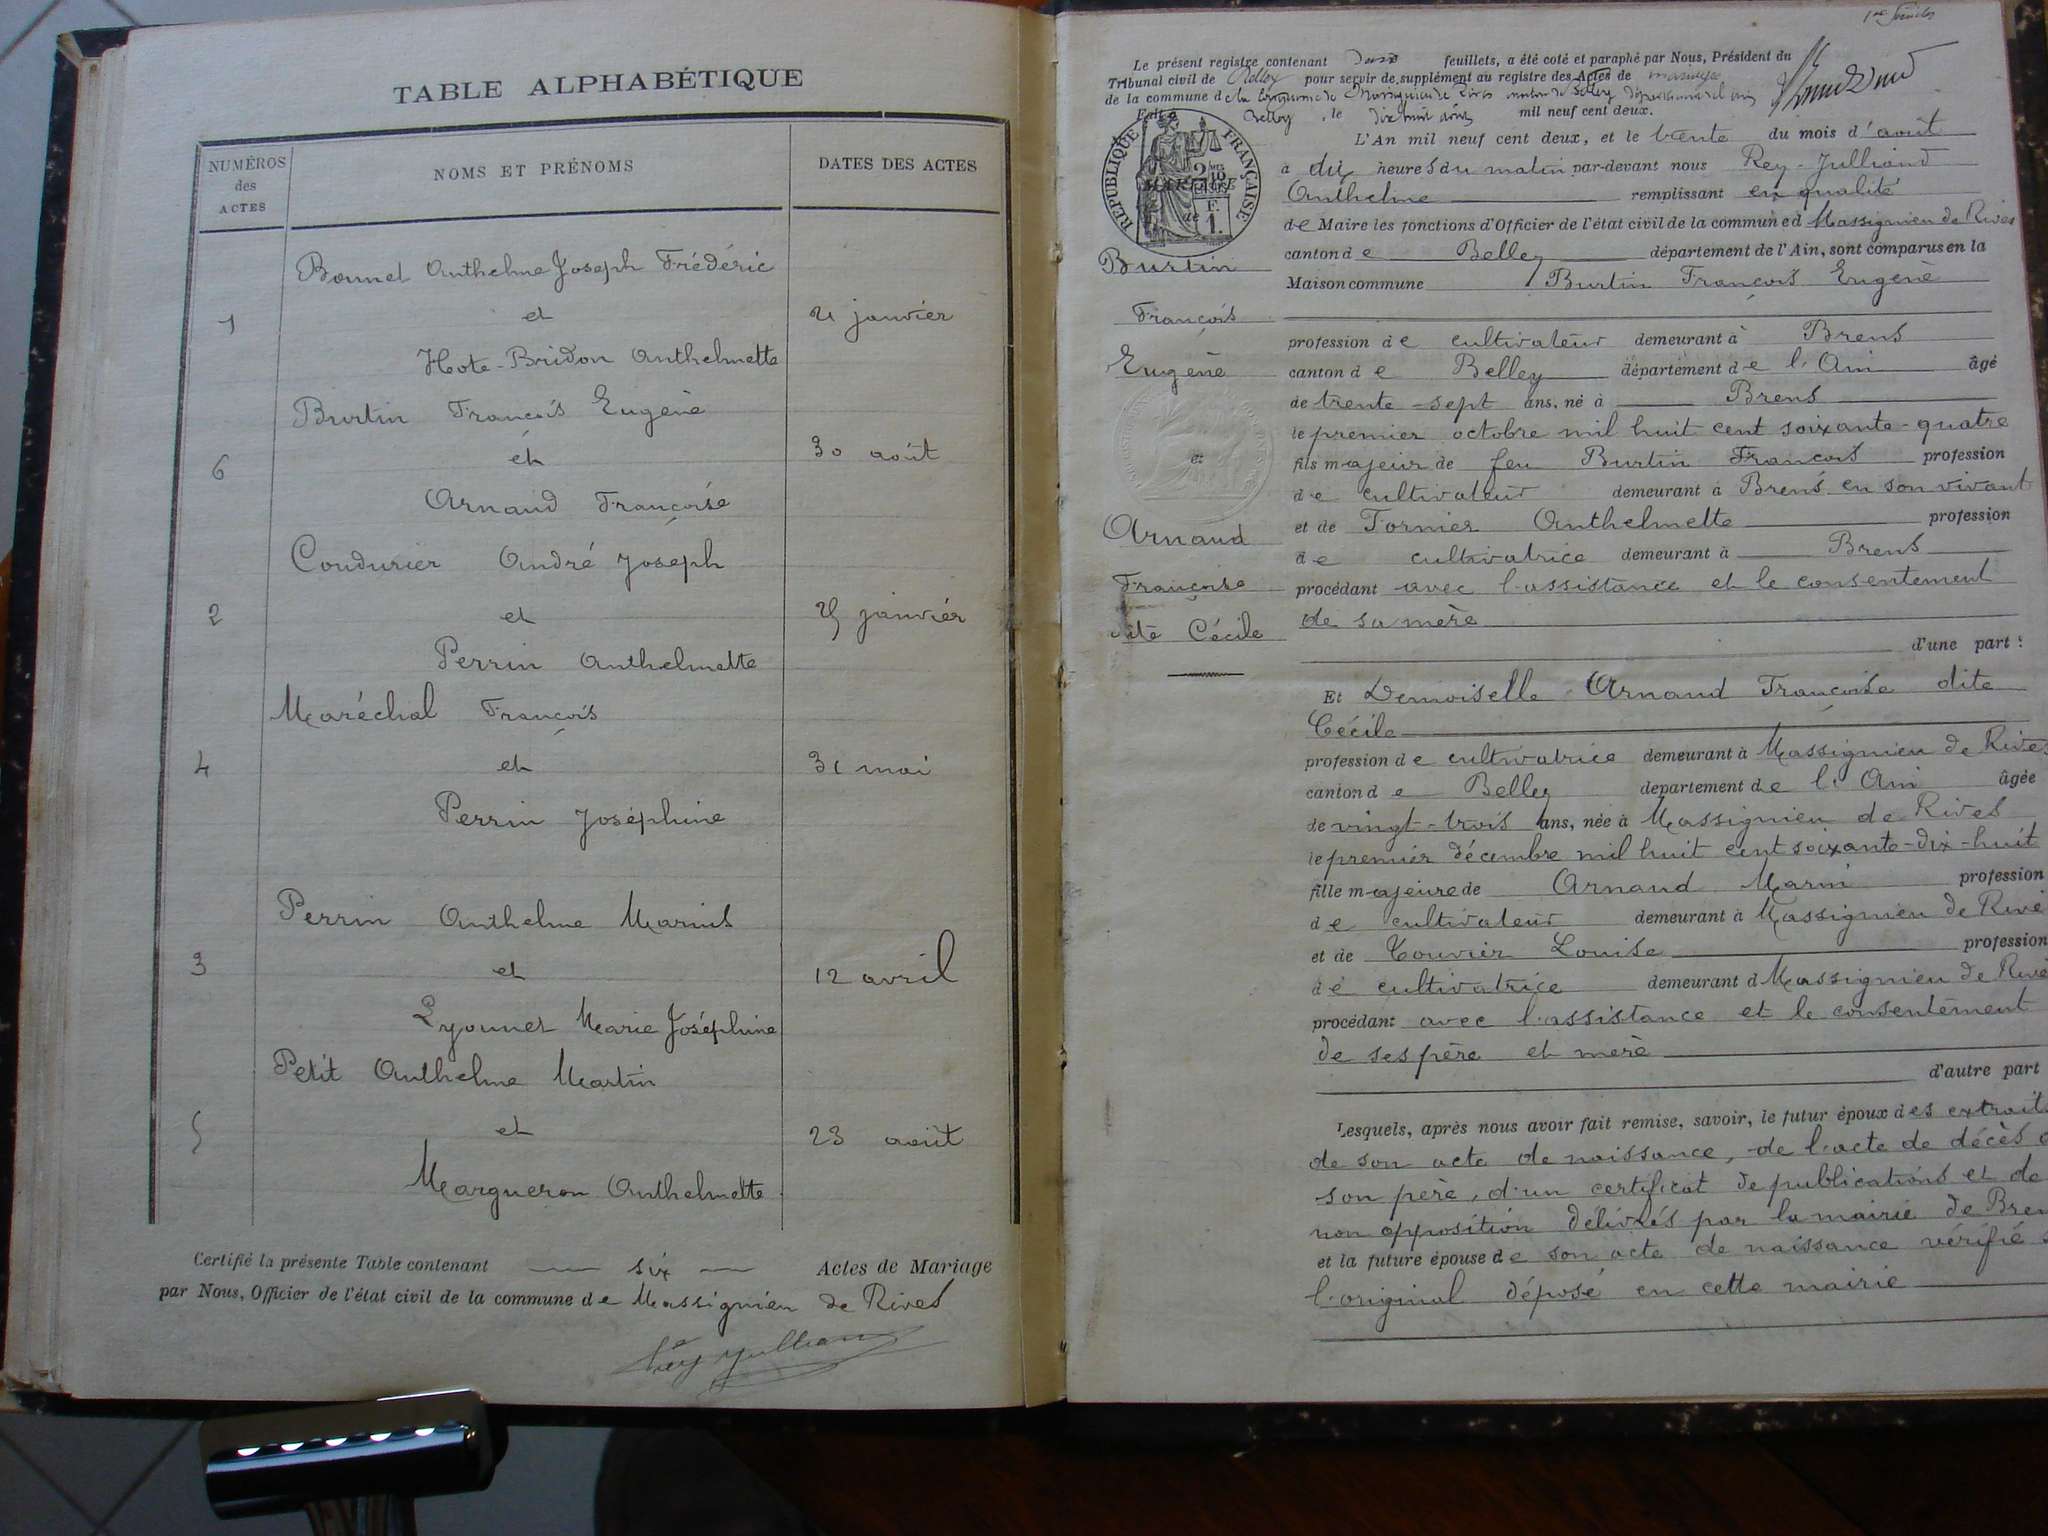 TABLE ALPHABÉTIQUE
NUMÉROS des ACTES
NOMS ET PRÉNOMS
DATES DES ACTES
Bonnet Anthelme Joseph Frédéric
1 et 21 janvier
Hote-Bridon Anthelmette
Burtin François Eugène
6 et 30 août
Arnaud Françoise
Coudurier André Joseph
2 et 25 janvier
Perrin Anthelmette
Maréchal François
4 et 31 mai
Perrin Joséphine
Perrin Anthelme Marius
3 et 12 avril
Lyonnet Marie Joséphine
Petit Anthelme Martin
5 et 23 août
Margueron Anthelmette
Certifié la présente Table contenant six Actes de Mariage
par Nous, Officier de l'état civil de la commune de Massignieu de Rives
Rey Julliand
Le présent registre contenant feuillets, a été coté et paraphé par Nous, Président du
Tribunal civil de Belley pour servir de supplément au registre des Actes de mariage
de la commune de Massignieu de Rives
Fait à Belley, le dix huit août mil neuf cent deux.
RÉPUBLIQUE FRANÇAISE
L'An mil neuf cent deux, et le trente du mois d'août
à dix heures du matin par-devant nous Rey-Julliand
Anthelme remplissant en qualité
de Maire les fonctions d'Officier de l'état civil de la commune d Massignieu de Rives
canton de Belley département de l'Ain, sont comparus en la
Maison commune Burtin François Eugène
Burtin
François
Eugène
et
Arnaud
Françoise
dite Cécile
profession de cultivateur demeurant à Brens
canton de Belley département de l'Ain âgé
de trente-sept ans, né à Brens
le premier octobre mil huit cent soixante-quatre
fils majeur de feu Burtin François profession
de cultivateur demeurant à Brens en son vivant
et de Tornier Anthelmette profession
de cultivatrice demeurant à Brens
procédant avec l'assistance et le consentement
de sa mère
d'une part :
Et Demoiselle Arnaud Françoise dite
Cécile
profession de cultivatrice demeurant à Massignieu de Rives
canton de Belley département de l'Ain âgée
de vingt-trois ans, née à Massignieu de Rives
le premier décembre mil huit cent soixante-dix-huit
fille majeure de Arnaud Marin profession
de cultivateur demeurant à Massignieu de Rive
et de Touvier Louise profession
de cultivatrice demeurant à Massignieu de Rive
procédant avec l'assistance et le consentement
de ses père et mère
d'autre part
Lesquels, après nous avoir fait remise, savoir, le futur époux des extraits
de son acte de naissance, de l'acte de décès
son père, d'un certificat de publications et de
non opposition délivrés par la mairie de Bren
et la future épouse de son acte de naissance vérifié
l'original déposé en cette mairie